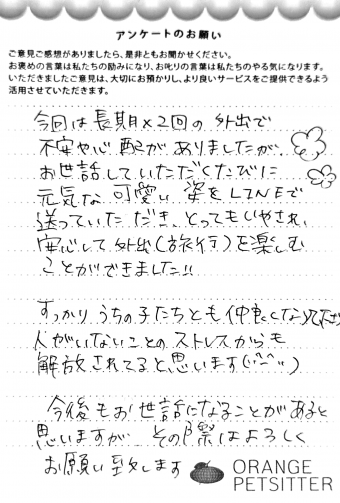 アンケートのお願い
ご意見ご感想がありましたら、是非ともお聞かせください。
お褒めの言葉は私たちの励みになり、お叱りの言葉は私たちのやる気になります。
いただきましたご意見は、大切にお預かりし、より良いサービスをご提供できるよう
活用させていただきます。
今回は長期×2回の外出で
不安や心配がありましたが、
お世話していただくたびに
元気な可愛い姿をLINEで
送っていただき、とってもいやされ、
安心して外出(旅行)を楽しむ
ことができました!!
すっかりうちの子たちとも仲良くなり
人がいないことのストレスからも
解放されてると思います(^^)
今後もお世話になることがあると
思いますが、その際はよろしく
お願い致します
ORANGE
PETSITTER